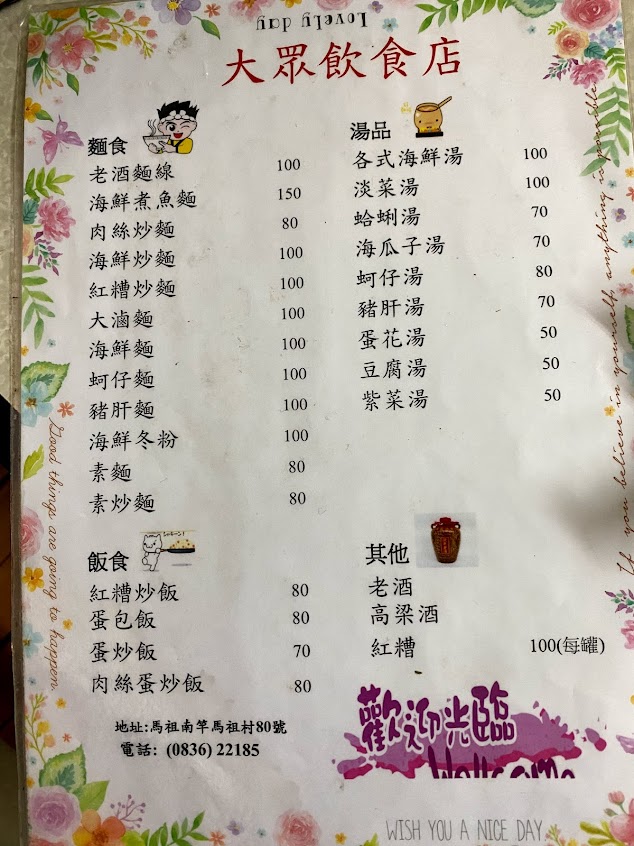 Lovely day
大眾飲食店
麵食
老酒麵線 100
海鮮煮魚麵 150
肉絲炒麵 80
海鮮炒麵 100
紅糟炒麵 100
大滷麵 100
海鮮麵 100
蚵仔麵 100
豬肝麵 100
海鮮冬粉 100
素麵 80
素炒麵 80
湯品
各式海鮮湯 100
淡菜湯 100
蛤蜊湯 70
海瓜子湯 70
蚵仔湯 80
豬肝湯 70
蛋花湯 50
豆腐湯 50
紫菜湯 50
飯食
紅糟炒飯 80
蛋包飯 80
蛋炒飯 70
肉絲蛋炒飯 80
其他
老酒
高梁酒
紅糟 100(每罐)
地址:馬祖南竿馬祖村80號
電話: (0836) 22185
歡迎光臨
Wellcome
WISH YOU A NICE DAY
Good things are going to happen.
If you believe in yourself, anything is possible.